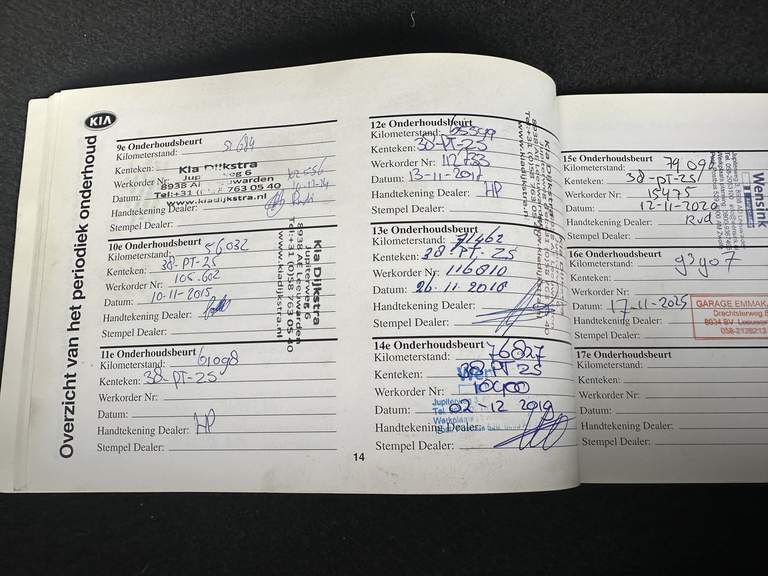 Overzicht van het periodiek onderhoud
KIA
9e Onderhoudsbeurt
Kilometerstand: 52684
Kenteken:
Werkorder Nr:
Datum:
Handtekening Dealer:
Stempel Dealer:
Kia Dijkstra
8938 A
Tel:+31 763 05 40
www.kiadijkstra.nl
10e Onderhoudsbeurt
Kilometerstand: 56032
Kenteken: 38-PT-25
Werkorder Nr: 105.602
Datum: 10-11-2015
Handtekening Dealer:
Stempel Dealer:
Kia Dijkstra
Jupiterweg 6
8938 AE Leeuwarden
Tel:+31 (0)58 763 05 40
www.kiadijkstra.nl
11e Onderhoudsbeurt
Kilometerstand: 61098
Kenteken: 38-PT-25
Werkorder Nr:
Datum:
Handtekening Dealer: HP
Stempel Dealer:
14
12e Onderhoudsbeurt
Kilometerstand: 65599
Kenteken: 38-PT-25
Werkorder Nr: 112733
Datum: 13-11-2017
Handtekening Dealer: HP
Stempel Dealer:
13e Onderhoudsbeurt
Kilometerstand: 71462
Kenteken: 38 PT-25
Werkorder Nr: 116810
Datum: 26-11-2018
Handtekening Dealer:
Stempel Dealer:
14e Onderhoudsbeurt
Kilometerstand: 76827
Kenteken: 38 PT 25
Werkorder Nr: 10400
Datum: 02-12 2019
Handtekening Dealer:
Stempel Dealer:
15e Onderhoudsbeurt
Kilometerstand: 79.090
Kenteken: 38-PT-25
Werkorder Nr: 15475
Datum: 12-11-2020
Handtekening Dealer: Rvd
Stempel Dealer:
Wensink
16e Onderhoudsbeurt
Kilometerstand: 93907
Kenteken:
Werkorder Nr:
Datum: 17-11-2025
Handtekening Dealer:
Stempel Dealer:
GARAGE EMMAKA
Drachtsterweg 8
8934 BV Leeuwar
058-2128213
17e Onderhoudsbeurt
Kilometerstand:
Kenteken:
Werkorder Nr:
Datum:
Handtekening Dealer:
Stempel Dealer: